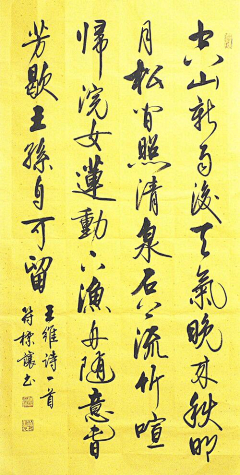 空山新雨後天氣晚来秋明
月松間照清泉石上流竹喧
歸浣女蓮動下漁舟隨意春
芳歇王孫自可留
王維詩一首
符標讓书